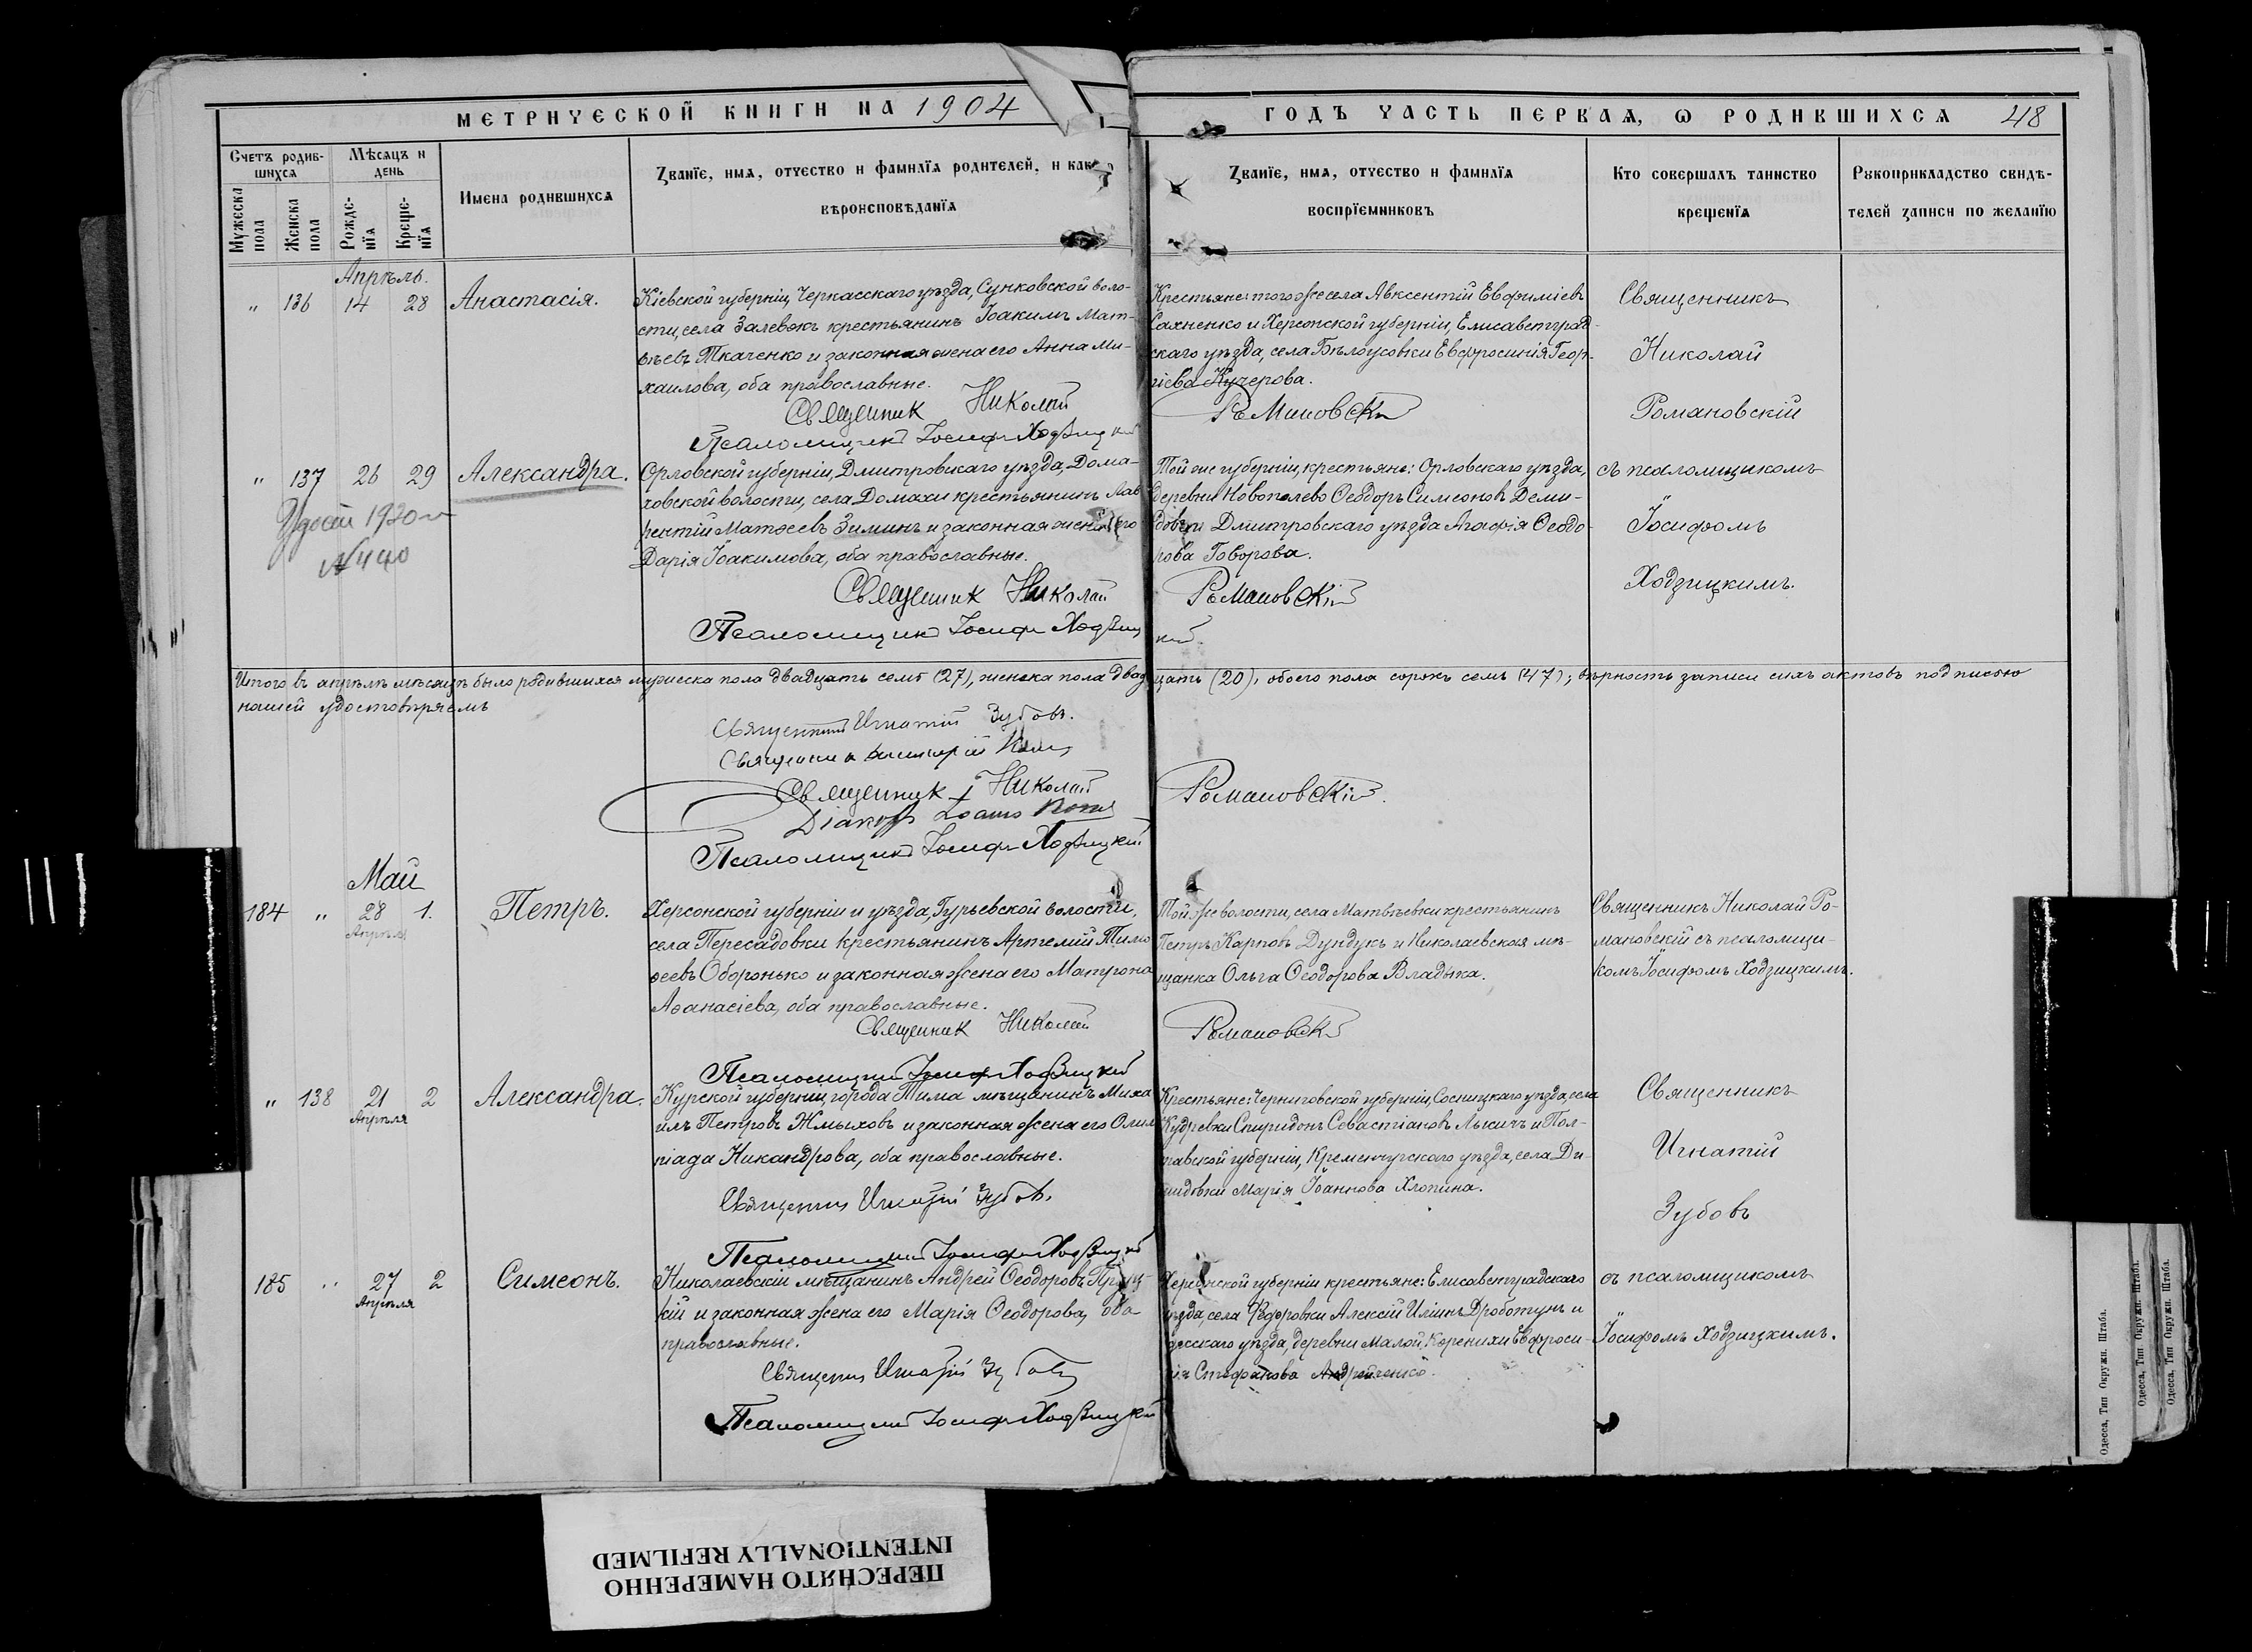 МЕТРИЧЕСКОЙ КНИГИ НА 1904
ГОДЪ ЧАСТЬ ПЕРВАЯ, Ѡ РОДИВШИХСЯ 48
Счетъ родив-
шихся
Мѣсяцъ и
день
Мужеска
пола
Женска
пола
Рожде-
нїя
Креще-
нїя
Имена родившихся
Званїе, имя, отчество и фамилїя родителей, и како
вѣроисповѣданїя
Званїе, имя, отчество и фамилїя
воспрїемниковъ
Кто совершалъ таинство
крещенїя
Рукоприкладство свидѣ-
телей записи по желанїю
Апрѣль.
" 136 14 28 Анастасія.
Кіевской губерніи, Черкасскаго уѣзда, Сунковской воло-
сти, села Залевокъ крестьянинъ Іоакимъ Мат-
ѳѣевъ Ткаченко и законная жена его Анна Ми-
хаилова, оба православные.
Священник Николай
Псаломщикъ Іосифъ Ходзицкий
Крестьяне: того же села Авксентій Евфиміевъ
Сахненко и Херсонской губерніи, Елисаветград-
скаго уѣзда, села Бѣлоусовки Евфросинія Геор-
гіева Кучерова.
Романовскій
Священникъ
Николай
Романовскій
" 137 26 29 Александра.
Удост 1920 г
№ 440
Орловской губерніи, Дмитровскаго уѣзда, Дома-
ховской волости, села Домахи крестьянинъ Лав-
рентій Матѳеевъ Зиминъ и законная жена его
Дарія Іоакимова, оба православные.
Священник Николай
Псаломщикъ Іосифъ Ходзиц
Той же губерніи, крестьяне: Орловскаго уѣзда,
деревни Новополево Ѳеодоръ Симеоновъ Деми-
довъ и Дмитровскаго уѣзда Агафія Ѳеодо-
рова Говорова.
Романовскій
кий.
съ псаломщикомъ
Іосифомъ
Ходзицкимъ.
Итого въ апрѣлѣ мѣсяцѣ было родившихся мужеска пола двадцать семь (27), женска пола двадцать (20), обоего пола сорокъ семь (47); вѣрность записи сихъ актовъ подписью
нашей удостовѣряемъ
Священникъ Игнатій Зубовъ.
Священникъ
Священник Николай
Романовскій.
Діаконъ
Псаломщикъ Іосифъ Ходзицкий
Май
184 " 28 1. Петръ.
Апрѣля
Херсонской губерніи и уѣзда, Гурьевской волости,
села Пересадовки крестьянинъ Артемій Тимо-
ѳеевъ Оборонько и законная жена его Матрона
Аѳанасіева, оба православные.
Священник Николай
Псаломщикъ Іосифъ Ходзицкий
Той же волости, села Матвѣевки крестьянинъ
Петръ Карповъ Дундукъ и Николаевская мѣ-
щанка Ольга Ѳеодорова Владыка.
Романовскій
Священникъ Николай Ро-
мановскій съ псаломщи-
комъ Іосифомъ Ходзицкимъ.
" 138 21 2 Александра.
Апрѣля
Курской губерніи, города Тима мѣщанинъ Миха-
илъ Петровъ Жмыховъ и законная жена его Олим-
піада Никандрова, оба православные.
Священник Игнатій Зубовъ.
Псаломщикъ Іосифъ Ходзицкий
Крестьяне: Черниговской губерніи, Сосницкаго уѣзда, села
Кудревки Спиридонъ Севастіановъ Лысичъ и Пол-
тавской губерніи, Кременчугскаго уѣзда, села
Марія Іоаннова Хлопина.
Священникъ
Игнатій
Зубовъ
185 " 27 2 Симеонъ.
Апрѣля
Николаевскій мѣщанинъ Андрей Ѳеодоровъ
кій и законная жена его Марія Ѳеодорова, оба
православные.
Священник Игнатій Зубовъ
Псаломщикъ Іосифъ Ходзицкий
Херсонской губерніи крестьяне: Елисаветградскаго
уѣзда, села Ѳедоровки Алексій Илiинъ Дроботунъ и
Одесскаго уѣзда, деревни Малой Коренихи Евфроси-
нія Стефанова Андрейченко.
съ псаломщикомъ
Іосифомъ Ходзицкимъ.
Одесса, Тип. Окружн. Штаба.
Одесса, Тип. Окружн. Штаба.
Одесса, Тип. Окружн. Штаба.
ПЕРЕСНЯТО НАМЕРЕННО
INTENTIONALLY REFILMED